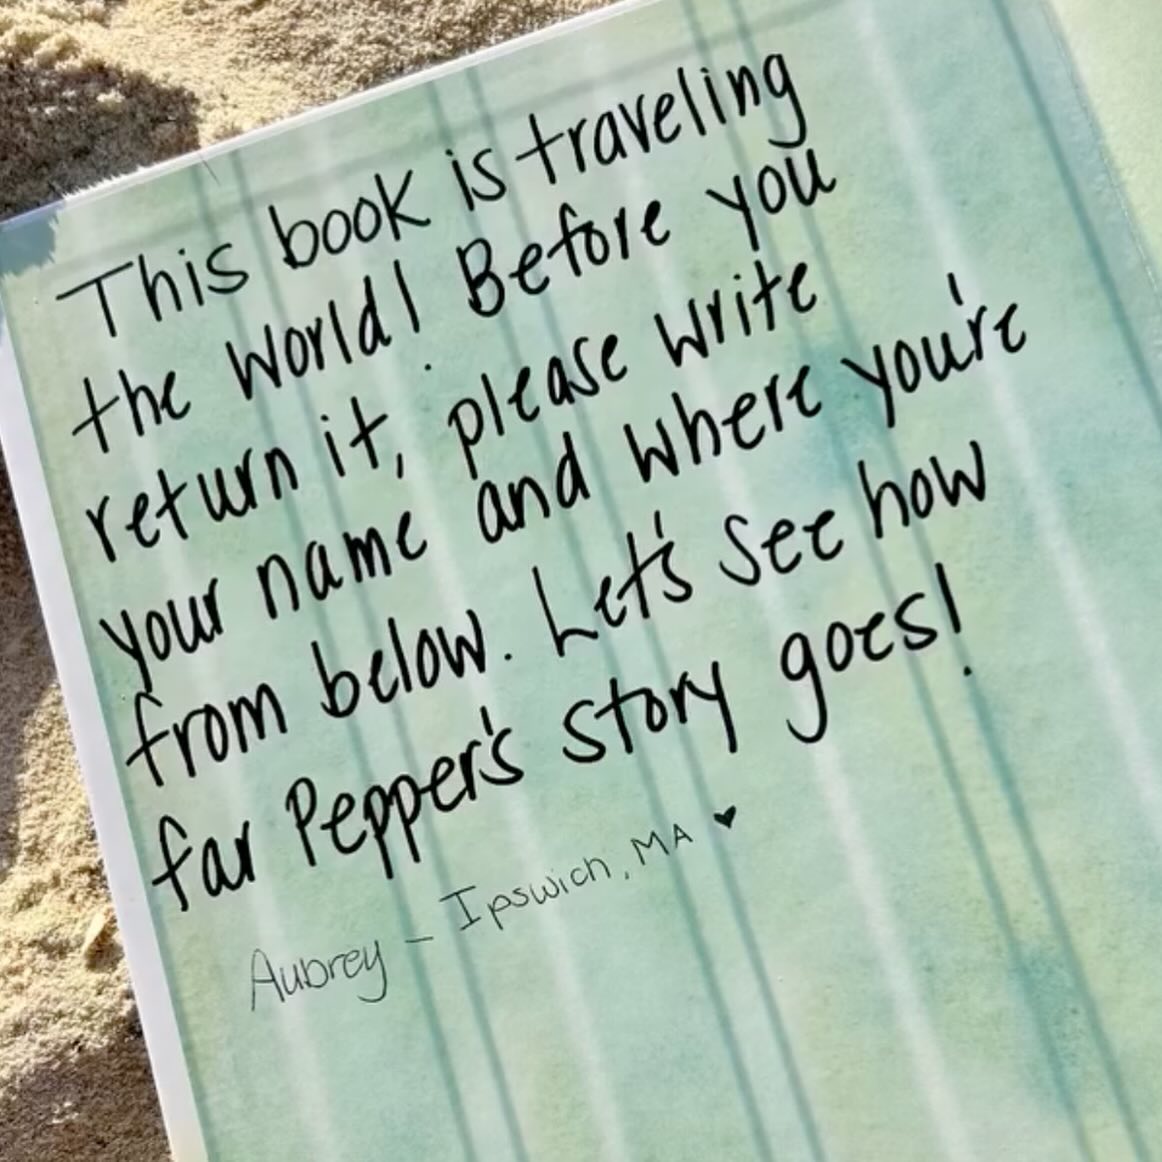 This book is traveling
the world! Before you
return it, please write
your name and where you're
from below. Let's see how
far Pepper's story goes!
Aubrey - Ipswich, MA ♥